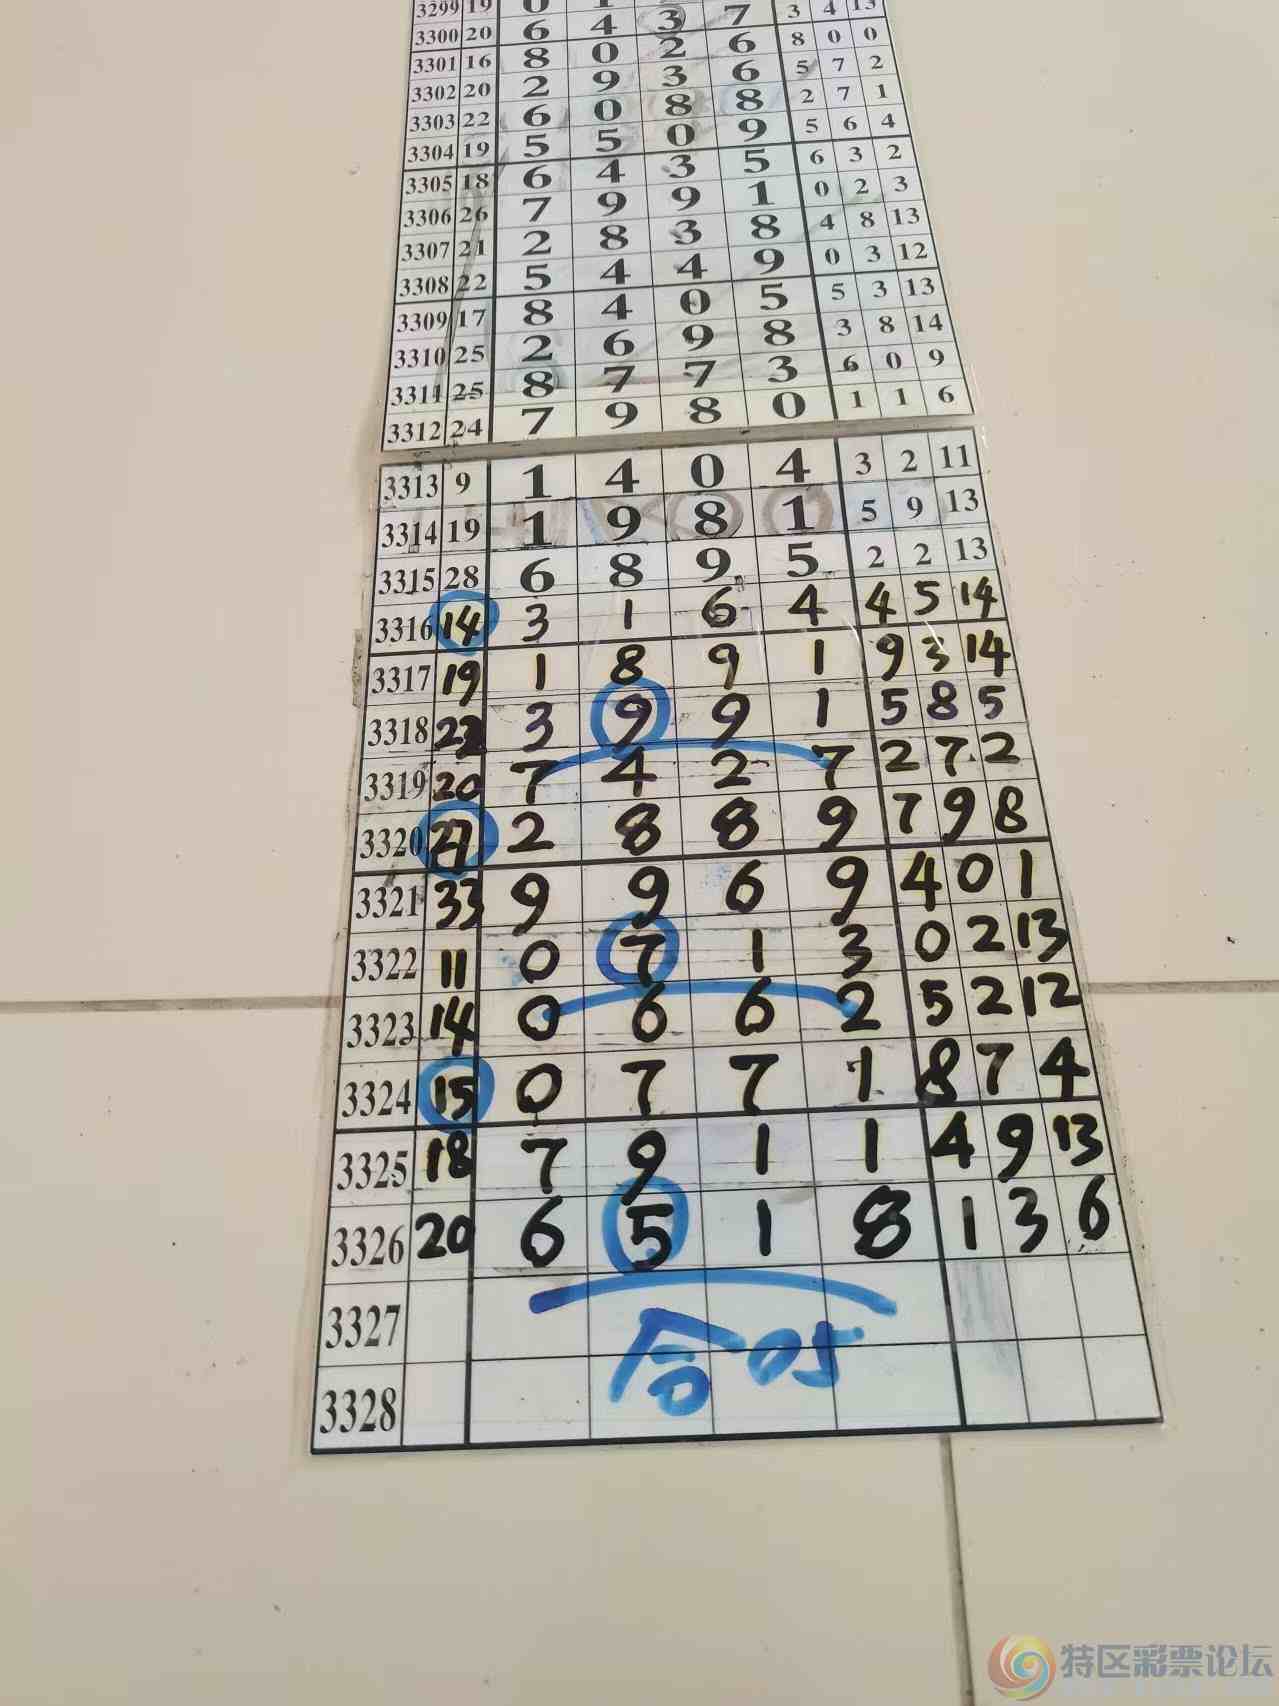 3299 19 0 1 3 4 13
3300 20 6 4 3 7 8 0 0
3301 16 8 0 2 6 5 7 2
3302 20 2 9 3 6 2 7 1
3303 22 6 0 8 8 5 6 4
3304 19 5 5 0 9 6 3 2
3305 18 6 4 3 5 0 2 3
3306 26 7 9 9 1 4 8 13
3307 21 2 8 3 8 0 3 12
3308 22 5 4 4 9 5 3 13
3309 17 8 4 0 5 3 8 14
3310 25 2 6 9 8 6 0 9
3311 25 8 7 7 3 1 1 6
3312 24 7 9 8 0
3313 9 1 4 0 4 3 2 11
3314 19 1 9 8 1 5 9 13
3315 28 6 8 9 5 2 2 13
3316 14 3 1 6 4 4 5 14
3317 19 1 8 9 1 9 3 14
3318 22 3 9 9 1 5 8 5
3319 20 7 4 2 7 2 7 2
3320 27 2 8 8 9 7 9 8
3321 33 9 9 6 9 4 0 1
3322 11 0 7 1 3 0 2 13
3323 14 0 6 6 2 5 2 12
3324 15 0 7 7 1 8 7 4
3325 18 7 9 1 1 4 9 13
3326 20 6 5 1 8 1 3 6
3327
合05
3328
特区彩票论坛